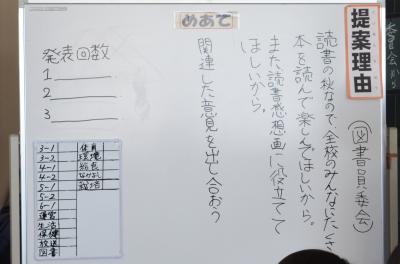 委員会から
提案理由
(図書員委会)
読書の秋なので、全校のみんなにたくさん
本を読んで楽しんでほしいから。
また、読書感想画に役立てて
ほしいから。
めあて
関連した意見を出し合おう
発表回数
1
2
3
3-1 体育
3-2 環境
4-1 給食
4-2 なかよし
5-1 総活
5-2
6-1
運営
生活
保健
放送
図書